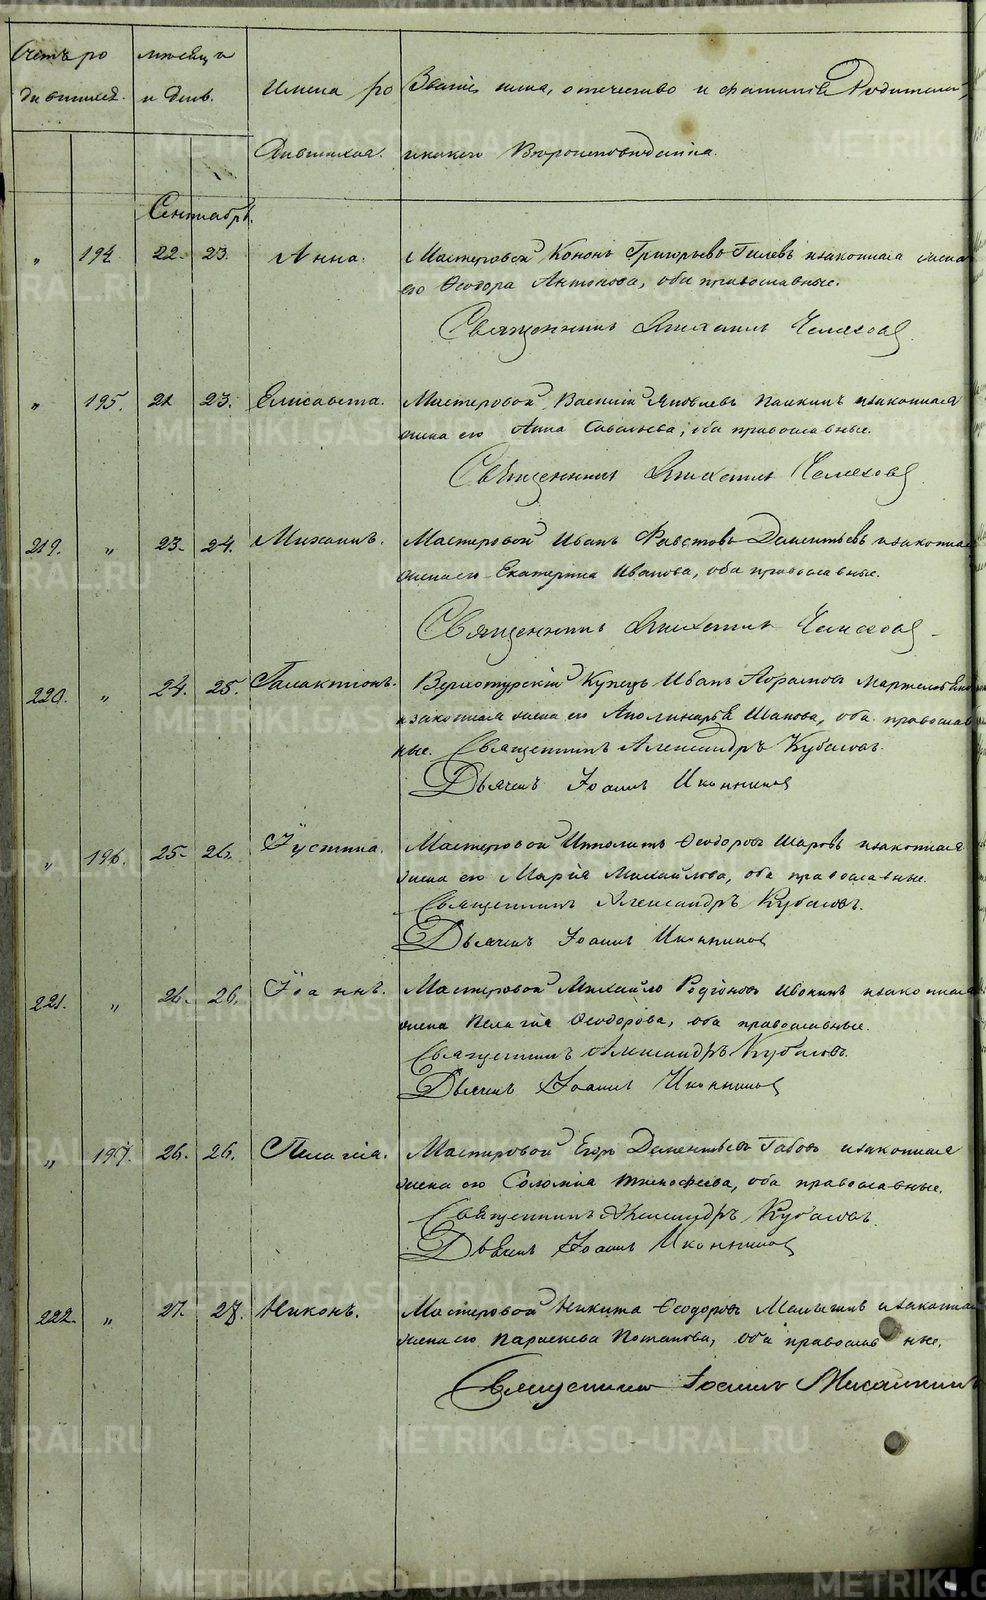 Счетъ ро
дившихся.
мѣсяцъ
и день.
Имена ро
дившихся.
Званіе имя, отечество и фамилія Родителей,
и какого Вѣроисповѣданія.
Сентябрь.
" 194. 22. 23. Анна. Мастеровой Кононъ Григорьевъ Гилевъ и законная жена
его Ѳеодора Антонова, оба православные.
Священникъ
" 195. 21 23. Елисавета. Мастеровой Василій Яковлевъ и законная
жена его Анна Савельева, оба православные.
Священникъ
219. " 23. 24. Михаилъ. Мастеровой Иванъ Дементьевъ и законная
жена его Екатерина Иванова, оба православные.
Священникъ
220. " 24. 25. Галактіонъ. Верхотурскій Купецъ Иванъ
и законная жена его Аполинарія Иванова, оба православ
ные. Священникъ Александръ Кубасовъ.
Дьячекъ Іоаннъ Иконниковъ
" 196. 25. 26. Іустина. Мастеровой Ипполитъ Ѳеодоровъ Шаровъ и законная
жена его Марія Михайлова, оба православные.
Священникъ Александръ Кубасовъ.
Дьячекъ Іоаннъ Иконниковъ
221. " 26. 26. Іоаннъ. Мастеровой Михайло Родіоновъ и законная
жена Пелагія Ѳеодорова, оба православные.
Священникъ Александръ Кубасовъ.
Дьячекъ Іоаннъ Иконниковъ
" 197. 26. 26. Пелагія. Мастеровой Егоръ Дементьевъ Бабовъ и законная
жена его Соломія Тимофеева, оба православные.
Священникъ Александръ Кубасовъ.
Дьячекъ Іоаннъ Иконниковъ
222. " 27. 28. Никонъ. Мастеровой Никита Ѳеодоровъ Малыгинъ и законная
жена его Параскева Потапова, оба православные.
Священникъ Іоаннъ
METRIKI.GASO-URAL.RU